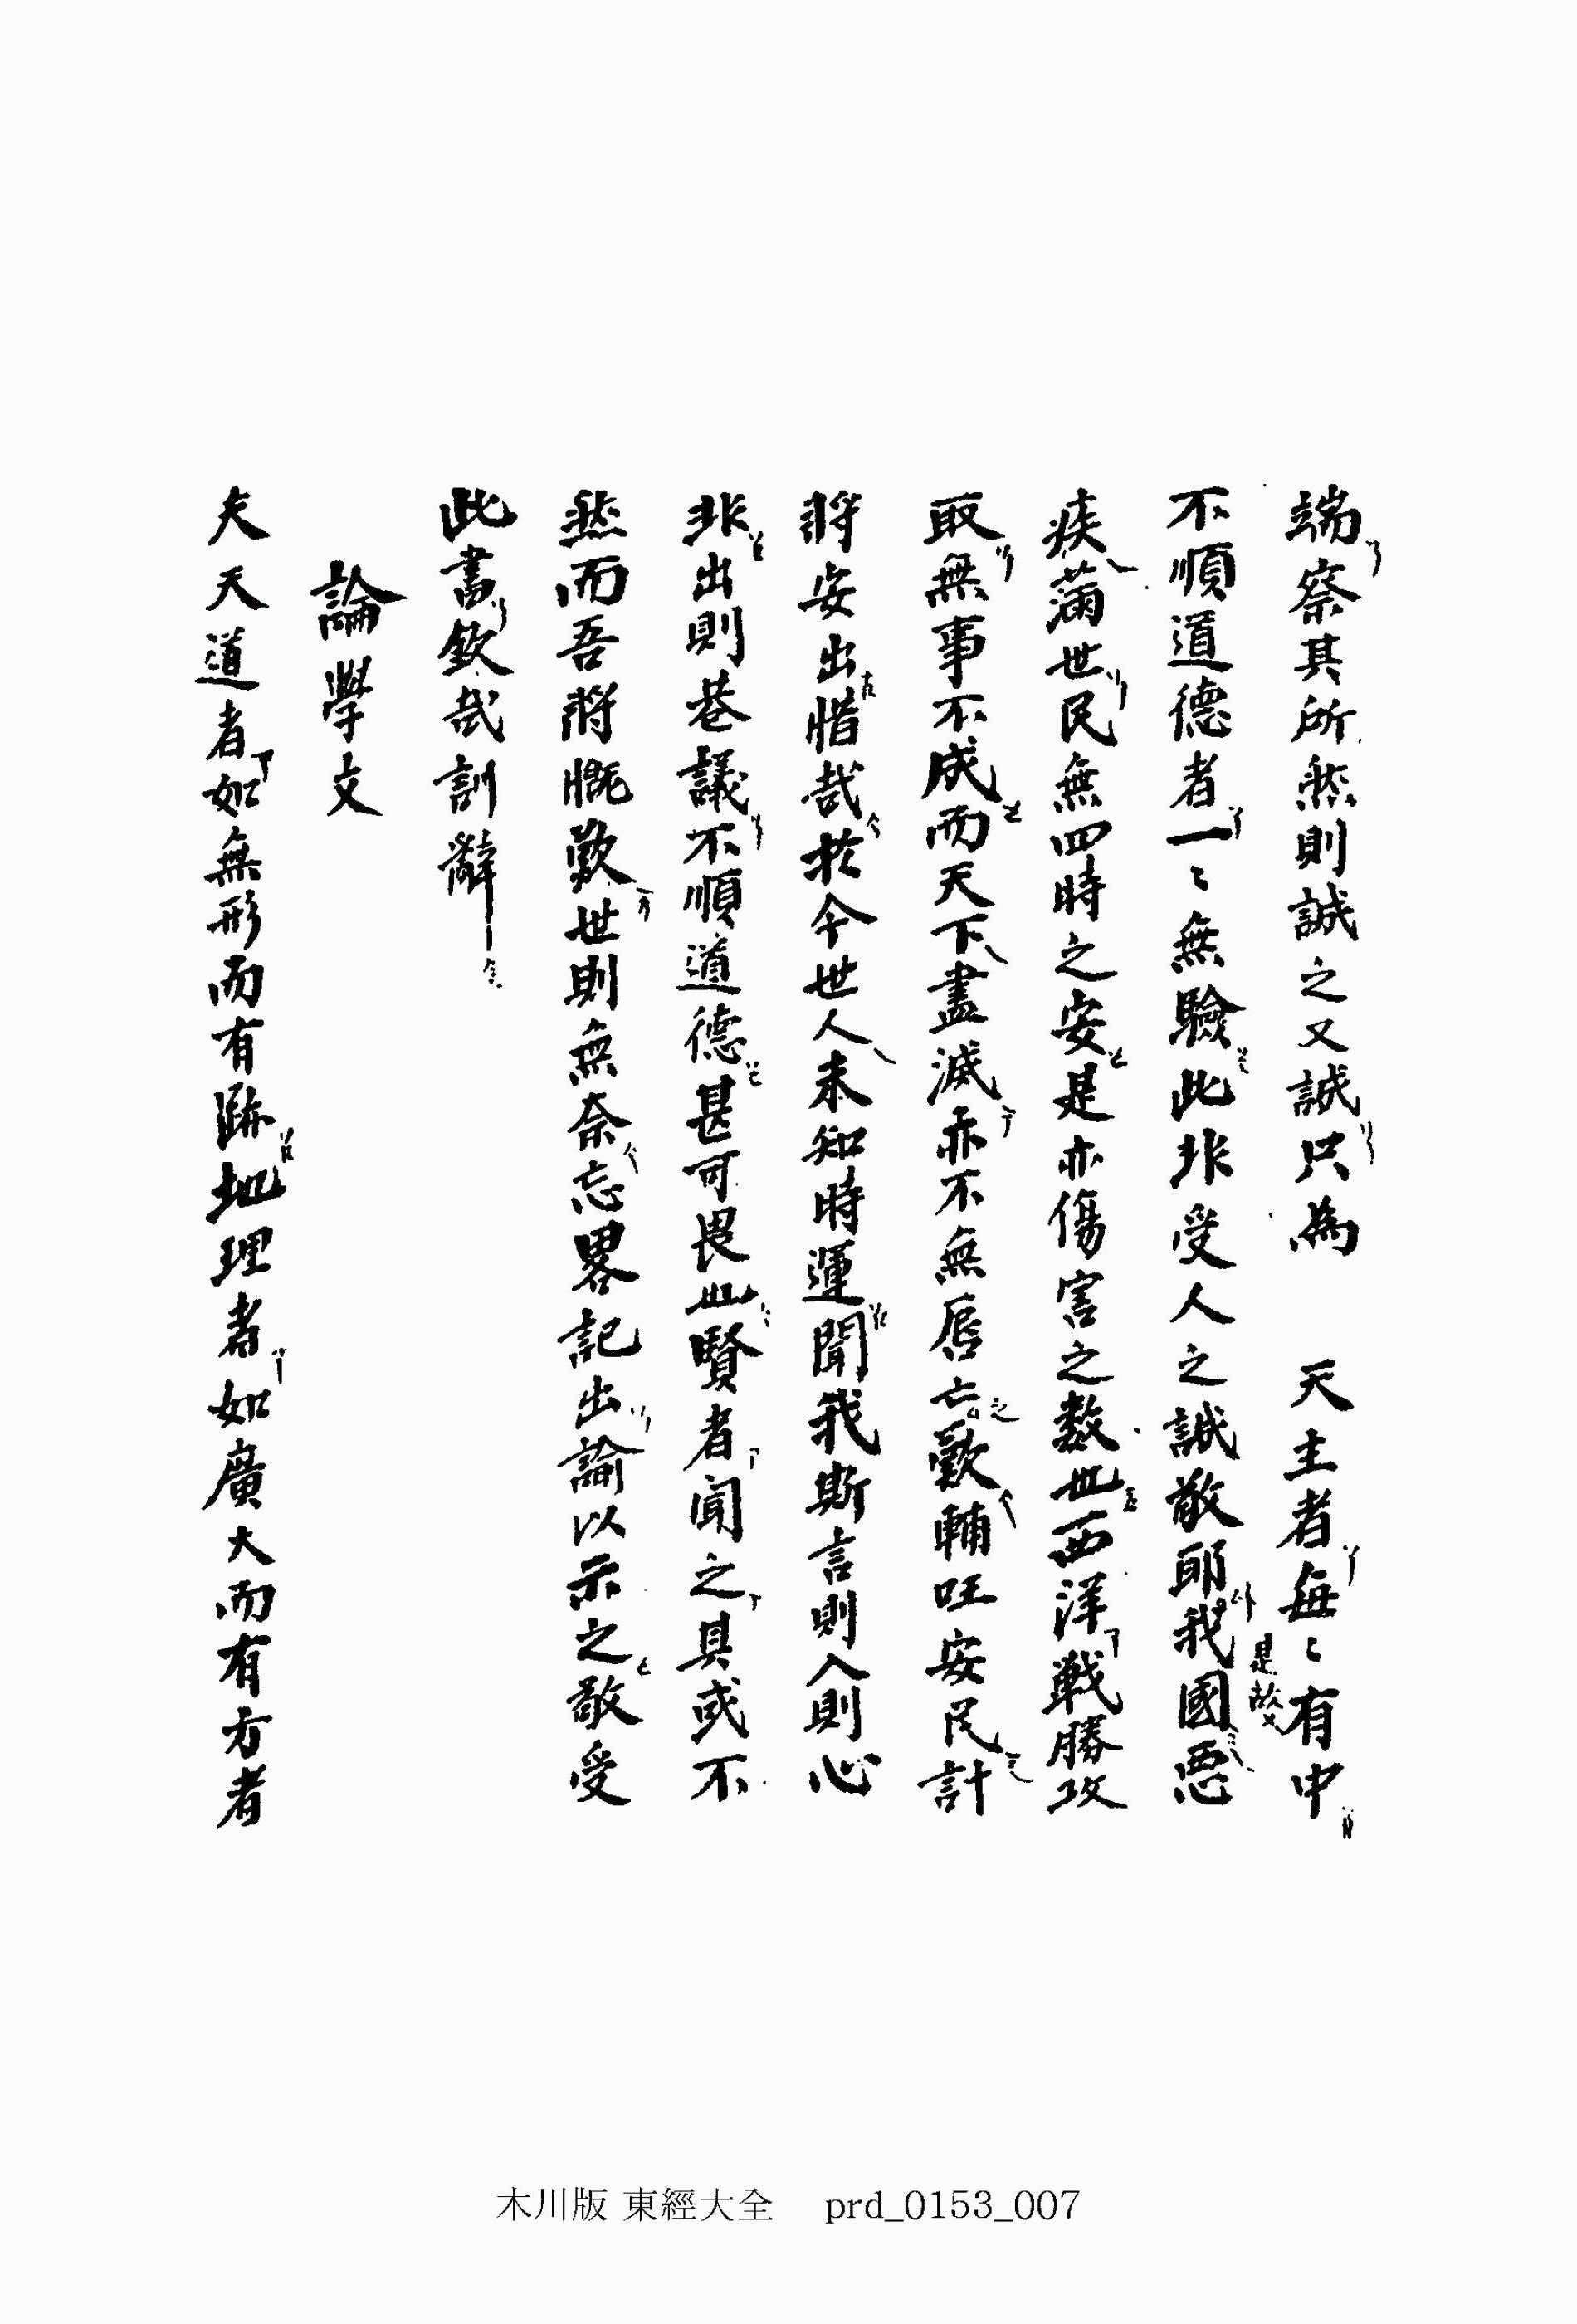 端察其所然則誠之又誠只為 天主者每〻有中
不順道德者一〻無驗此非受人之誠敬耶我國惡
是故
疾滿世民無四時之安是亦傷害之數也西洋戰勝攻
取無事不成而天下盡滅亦不無唇亡歎輔㕵安民計
將安出惜哉於今世人未知時運聞我斯言則入則心
非出則巷議不順道德甚可畏也賢者聞之其或不
然而吾將慨歎世則無奈忘畧記出諭以示之敬受
此書欽哉訓辭
論學文
夫天道者如無形而有跡地理者如廣大而有方者
木川版 東經大全 prd_0153_007